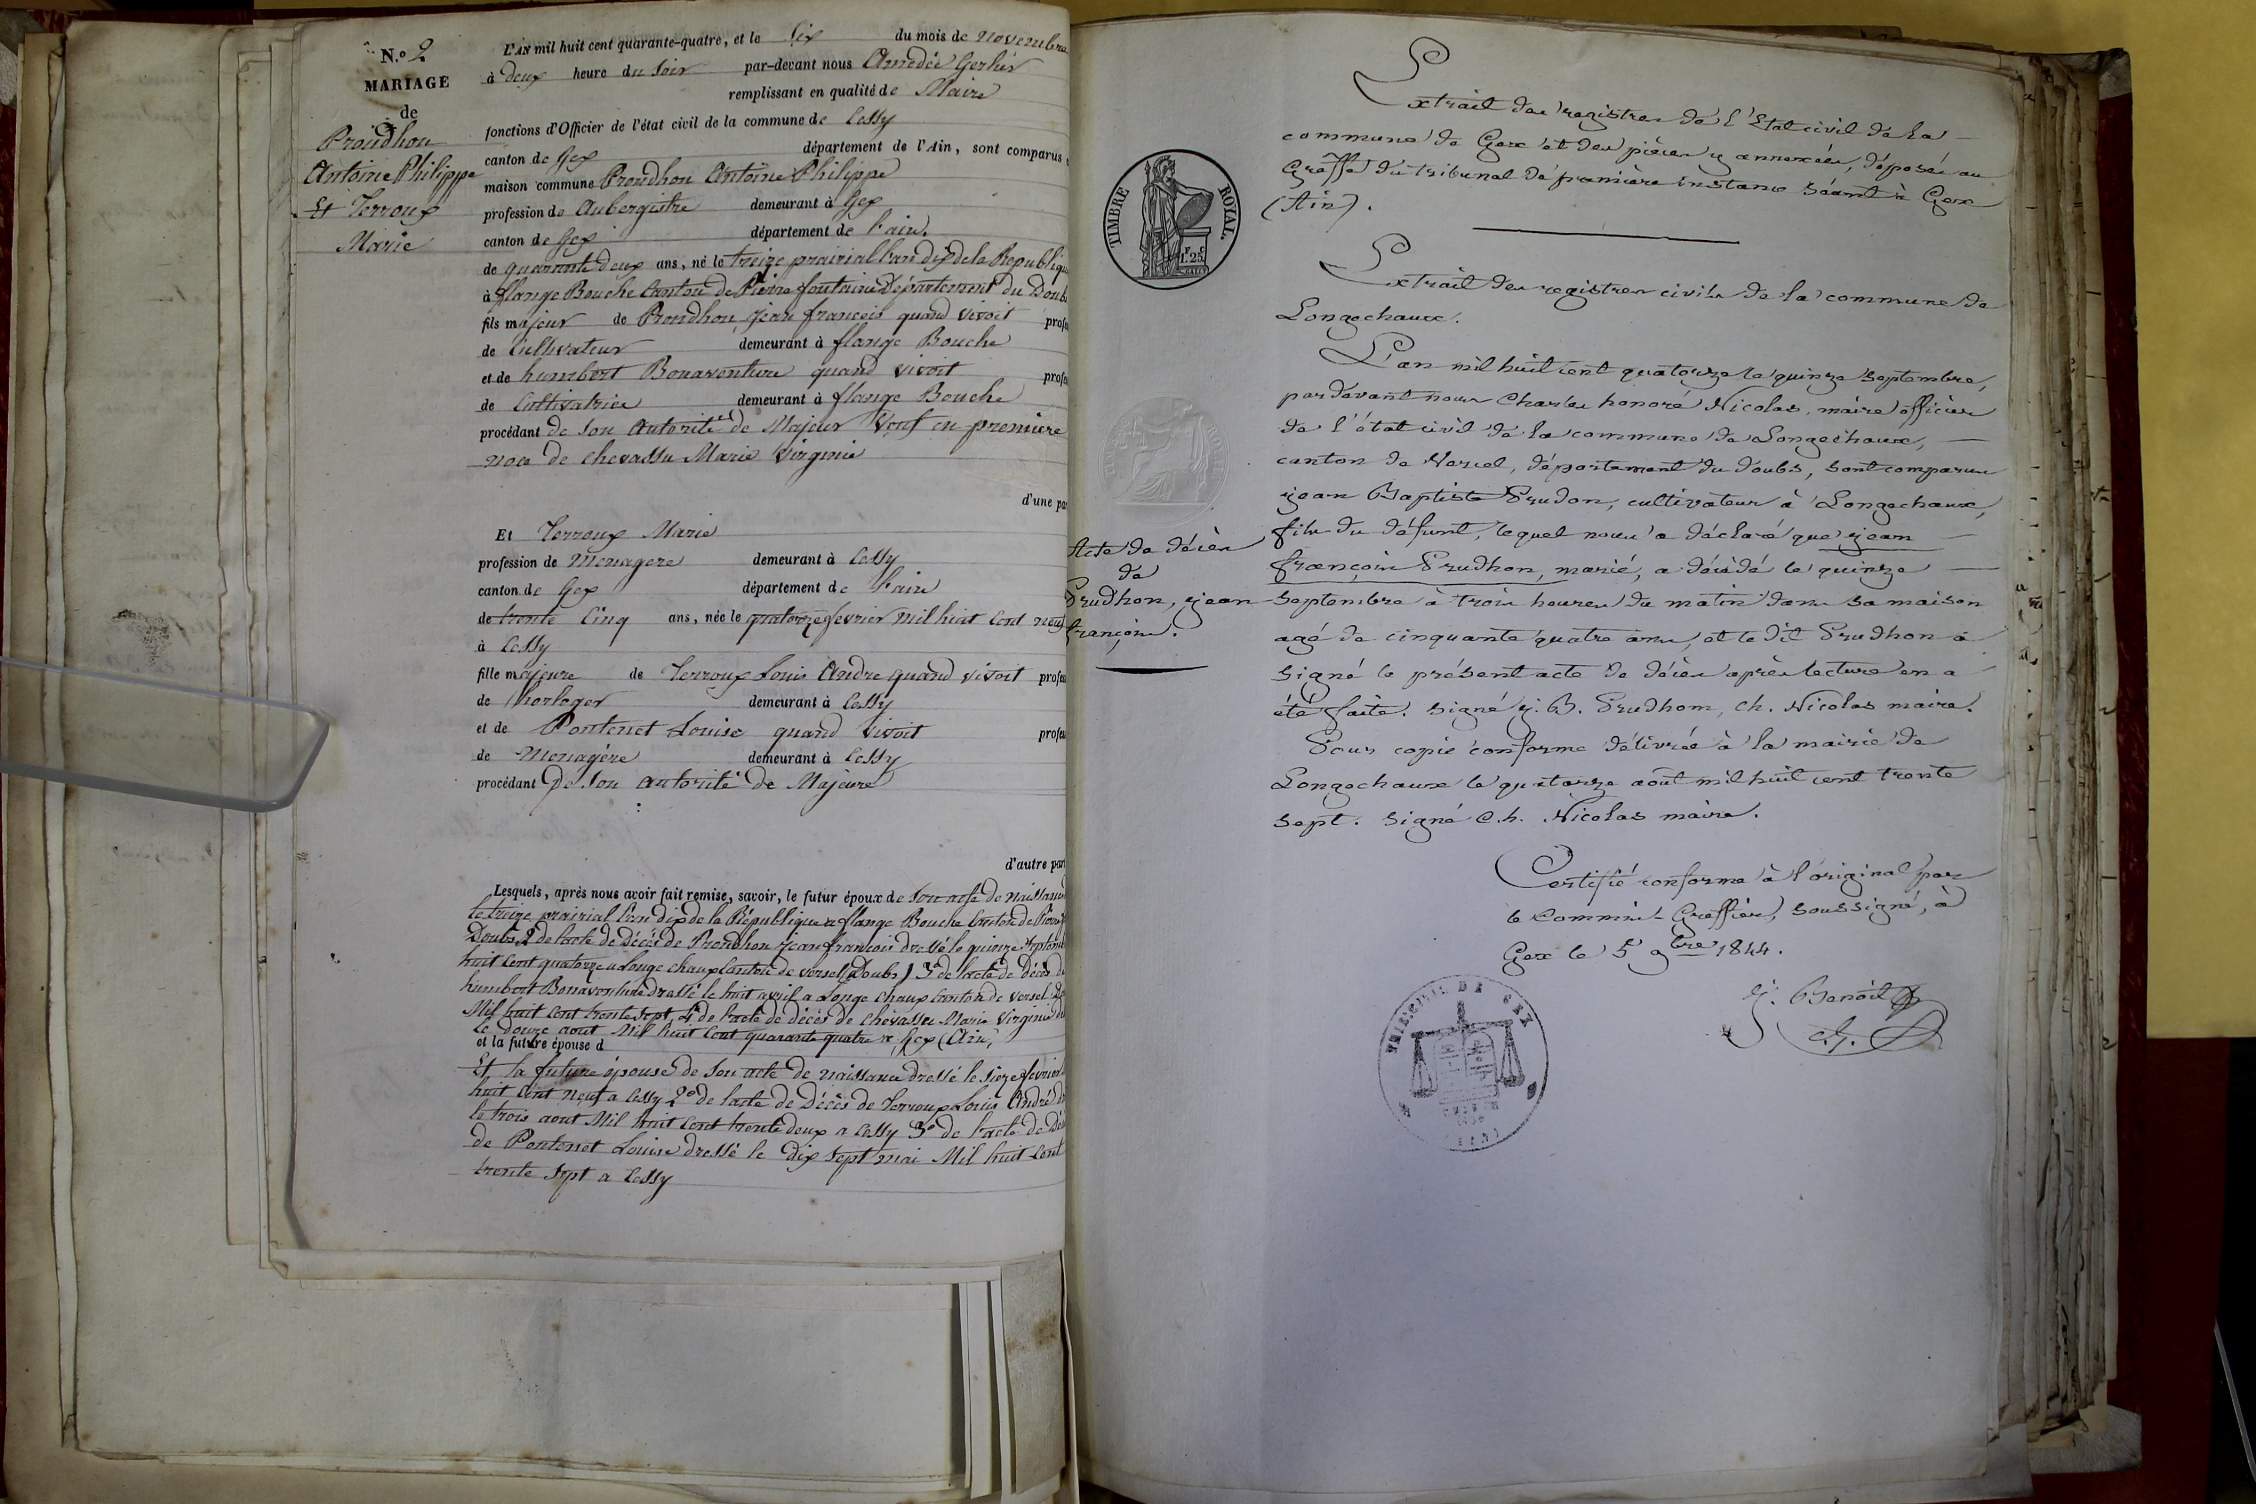 N.o 2
MARIAGE
de
Proudhon
Antoine Philippe
Et Terroux
Marie
L'AN mil huit cent quarante-quatre, et le Six du mois de novembre
à deux heure du Soir par-devant nous Amédée Gerlier
remplissant en qualité de Maire
fonctions d'Officier de l'état civil de la commune de Cessy
canton de Gex département de l'Ain, sont comparus
maison commune Proudhon Antoine Philippe
profession de Aubergiste demeurant à Gex
canton de Gex département de l'ain.
de quarante deux ans, né le treize prairial l'an dix de la République
à flange Bouche Canton de Pierre fontaine Département du Doubs
fils majeur de Proudhon, jean françois quand vivoit profes
de Cultivateur demeurant à flange Bouche
et de humbert Bonaventure quand vivoit profes
de Cultivatrice demeurant à flange Bouche
procédant de son Autorité de Majeur Veuf en première
noce de chevassu Marie Virginie
d'une par
Et Terroux Marie
profession de Menagere demeurant à Cessy
canton de Gex département de l'ain
de trente Cinq ans, née le quatorze fevrier mil huit Cent neuf
à Cessy
fille majeure de Terroux Louis Andre quand vivoit profes
de horloger demeurant à Cessy
et de Pontenet Louise quand vivoit profes
de Menagère demeurant à Cessy
procédant De Son autorité de Majeure
d'autre part
Lesquels, après nous avoir fait remise, savoir, le futur époux de Son acte de naissance
le treize prairial l'an dix de la République a flange Bouche Canton de Pierre
Doubs 2 de l'acte de Décès de Proudhon jean francois dressé le quinze septemb
huit Cent quatorze a Longe chaux Canton de versel (Doubs) 3° de l'acte de Décès de
humbert Bonaventure dressé le huit avril a Longe chaux Canton de versel
Mil huit Cent trente sept, 4° de l'acte de décès de Chevassu Marie Virginie
le douze aout Mil huit Cent quarante quatre a Gex (Ain)
et la future épouse d
Et la future épouse de Son acte de naissance dressé le Sieze fevrier
huit Cent neuf a Cessy 2° de l'acte de Décès de Terroux Louis André
le trois aout Mil huit Cent trente deux a Cessy 3° de l'acte de Dé
de Pontenet Louise dressé le dix sept mai Mil huit Cent
trente sept a Cessy
TIMBRE ROYAL.
1 F. 25 C.
Extrait des registres de l'Etat civil de la
commune de Gex et des pièces y annexées, déposé au
Greffe du tribunal de première instance séant à Gex
(Ain).
Extrait des registres civils de la commune de
Longechaux.
L'an mil huit cent quatorze le quinze septembre,
pardevant nous Charles honoré Nicolas, maire officier
de l'état civil de la commune de Longechaux,
canton de Vercel, département du Doubs, sont comparus
jean Baptiste Prudon, cultivateur à Longechaux,
fils du défunt, lequel nous a déclaré que jean
françois Prudhon, marié, a décédé le quinze
septembre à trois heures du matin dans sa maison
agé de cinquante quatre ans, et le dit Prudhon a
signé le présent acte de décès après lecture en a
été faite. signé j. B. Prudhom, Ch. Nicolas maire.
Pour copie conforme délivrée à la mairie de
Longechaux le quatorze août mil huit cent trente
sept. signé C.h. Nicolas maire.
Acte de décès
de
Prudhon, jean
françois.
Certifié conforme à l'original par
le Commis-Greffier, soussigné, à
Gex le 5 9bre 1844.
J. Benoit
TRIBUNAL DE GEX
(AIN)